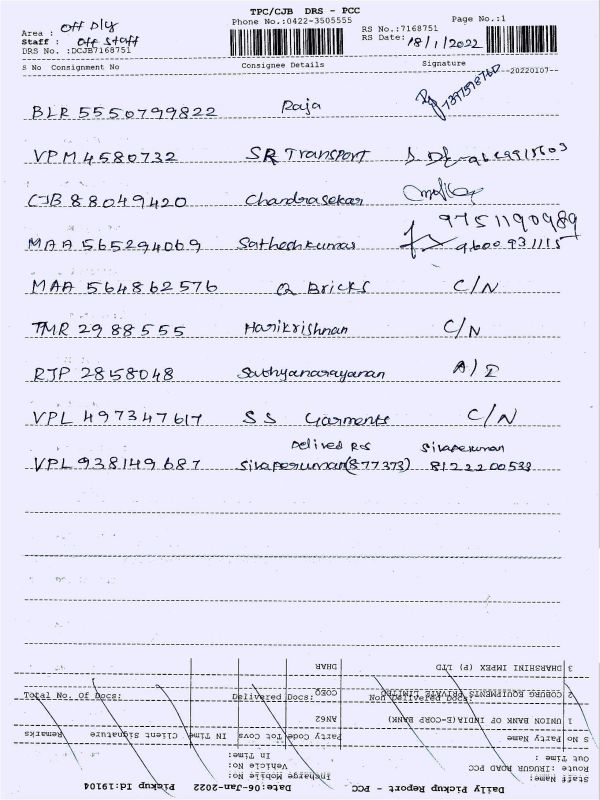 TPC/CJB DRS - PCC
Phone No.:0422-3505555
Page No.:1
Area : Off Dly
Staff : Off Staff
DRS No. :DCJB7168751
RS No.:7168751
RS Date: 18/1/2022
S No Consignment No Consignee Details Signature
--20220107--
BLR 5550799822 Raja
VPM 4580732 SR Transport
CJB 88049420 Chandrasekar
9751190989
MAA 565294069 Satheshkumar 9600931115
MAA 564862576 Q Bricks C/N
TMR 2988555 Harikrishnan C/N
RJP 2858048 Sathyanarayanan A/I
VPL 497347617 S S Garments C/N
Delived Rcs Sivaperuman
VPL 938149687 Sivaperuman(877373) 8122200533
Total No. Of Docs: Delivered Docs: Non Delivered Docs:
Daily Pickup Report - PCC Date:06-Jan-2022 Pickup Id:19104
Staff Name: Incharge Mobile No:
Route :IRUGUR ROAD PCC Vehicle No:
Out Time : In Time:
S No Party Name Party Code Tot Covs IN Time Client Signature Remarks
1 UNION BANK OF INDIA(E-CORP BANK) AN62
2 COBURG EQUIPMENTS PRIVATE LIMITED COEQ
3 DHARSHINI IMPEX (P) LTD DHAR